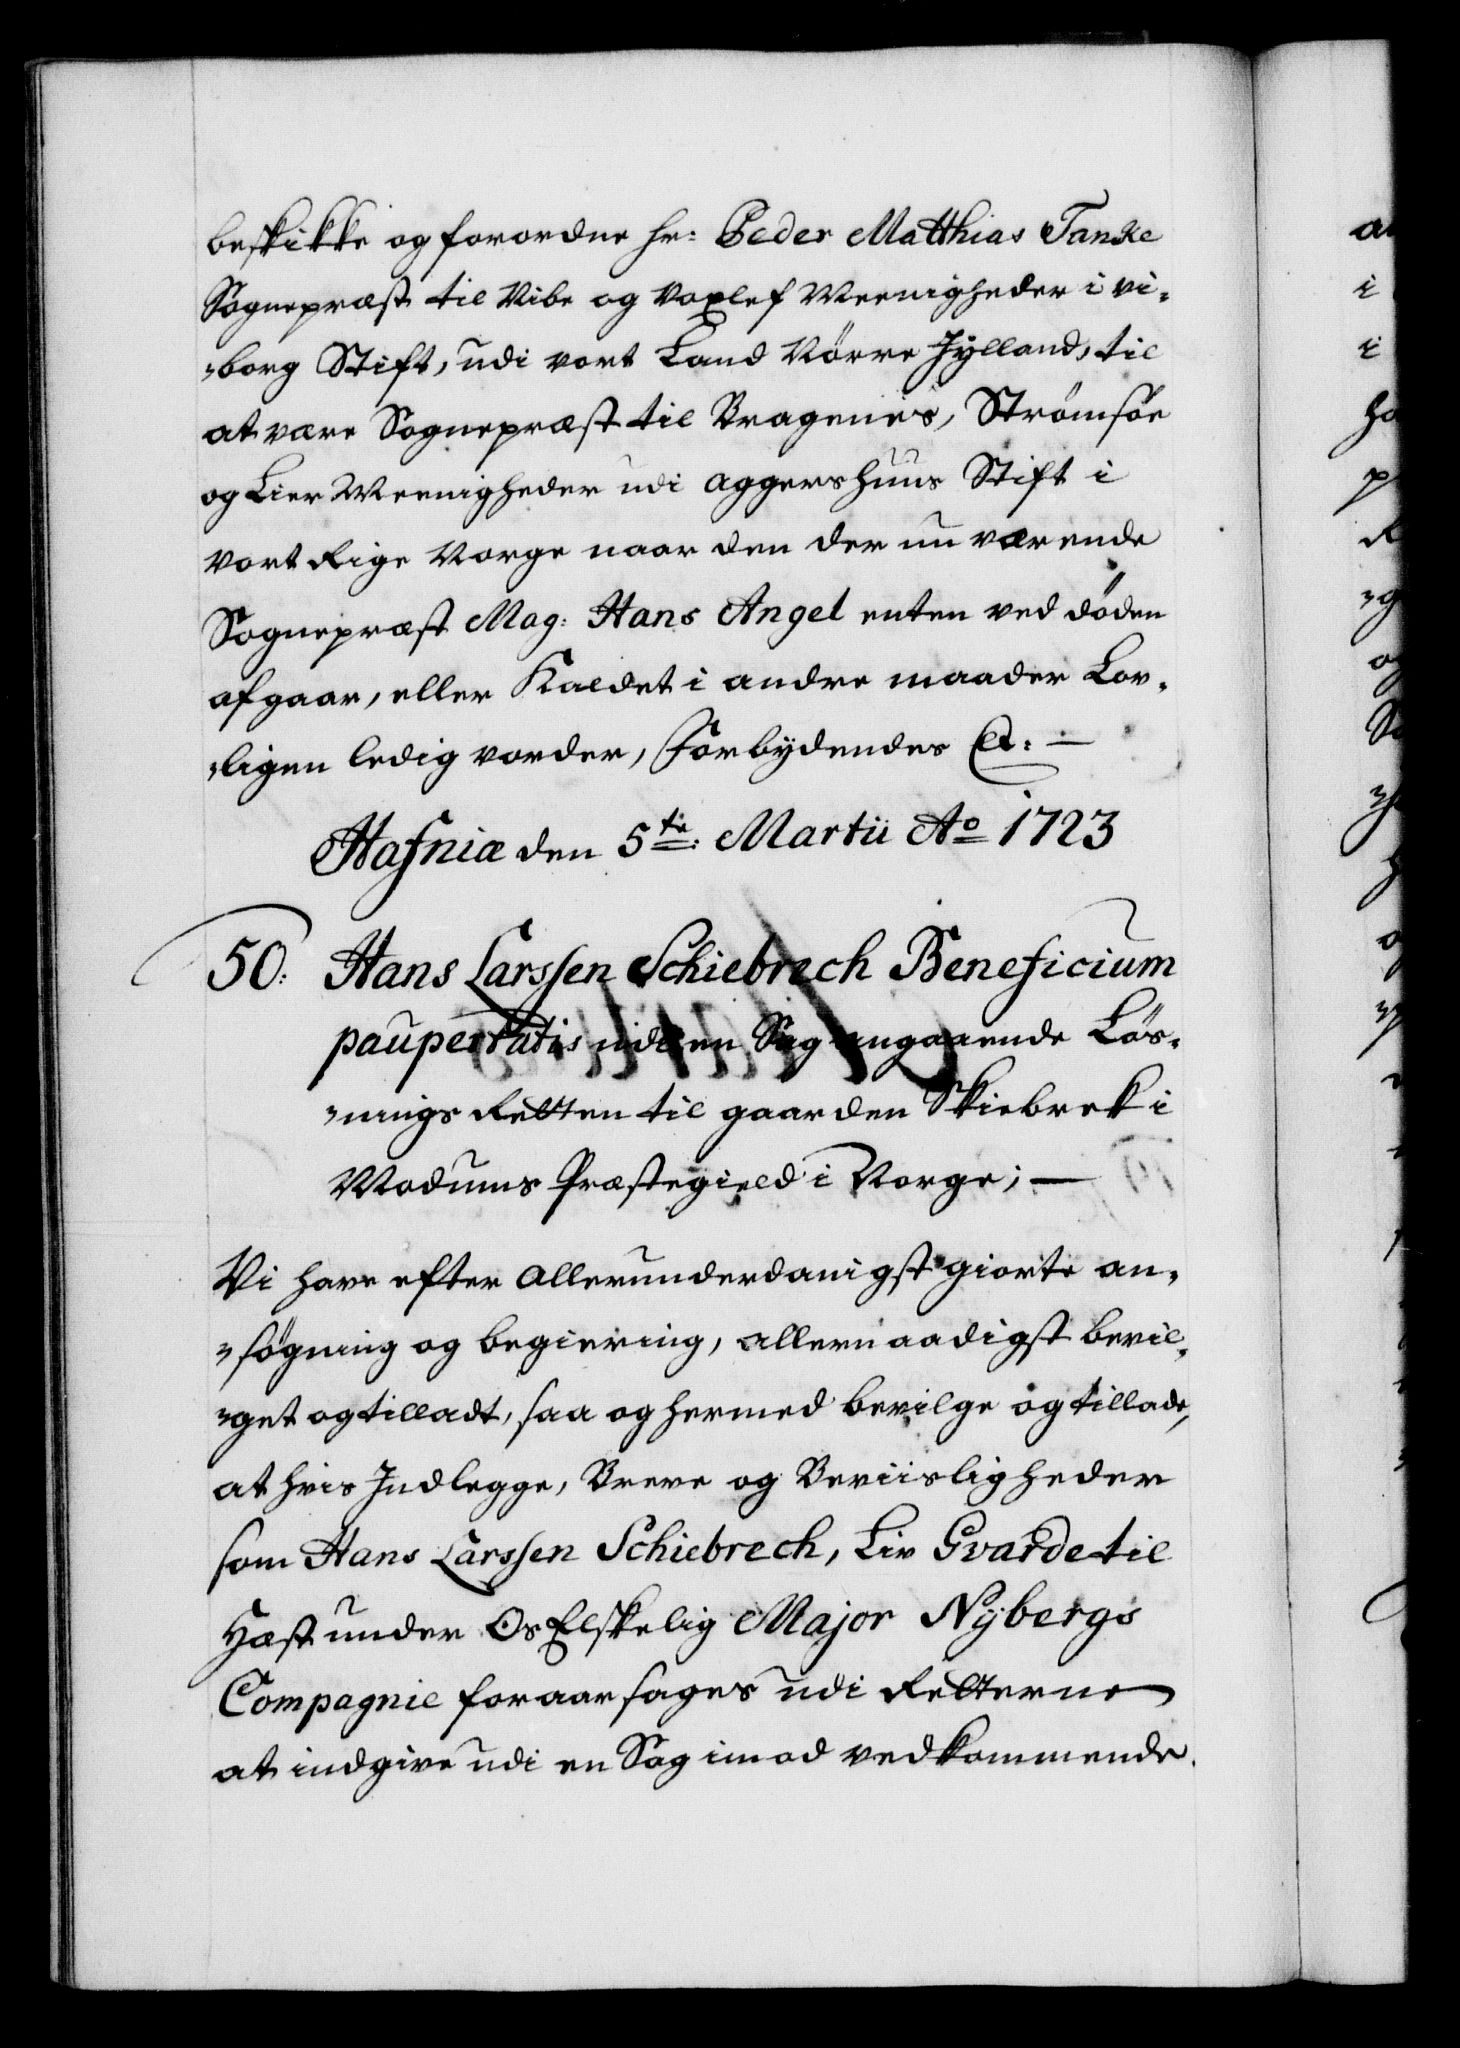 beskikke og forordne hr: Peder Matthias Tanke
Sognepræst til Vibe og Voxlef Meenigheder i vi-
-borg Stift, udi vort Land Nörre Jylland, til
at være Sognepræst til Bragenes, Strömsöe
og Lier Meenigheder udi Aggershuus Stift i
vort Rige Norge naar den der nu værende
Sognepræst Mag: Hans Angel enten ved döden
afgaar, eller Kaldet i andre maader Lov-
-ligen ledig vorder, Forbydendes &: —
Hafniæ den 5te: Martii Ao 1723
50: Hans Larssen Schiebrech Beneficium
paupertatis udi en Sag angaaende Lös-
-nings Retten til gaarden Skiebrek i
Modums Præstegield i Norge; —
Vi have efter allerunderdanigst giorte an-
-søgning og begiering, allernaadigst bevil-
-get og tilladt, saa og hermed bevilge og tillade,
at hvis Indlegge, Breve og Beviisligheder
som Hans Larssen Schiebrech, Liv Gvarde til
Hest under Os Elskelig Major Nybergs
Compagnie foraarsages udi Retterne
at indgive udi en Sag imod vedkommende.